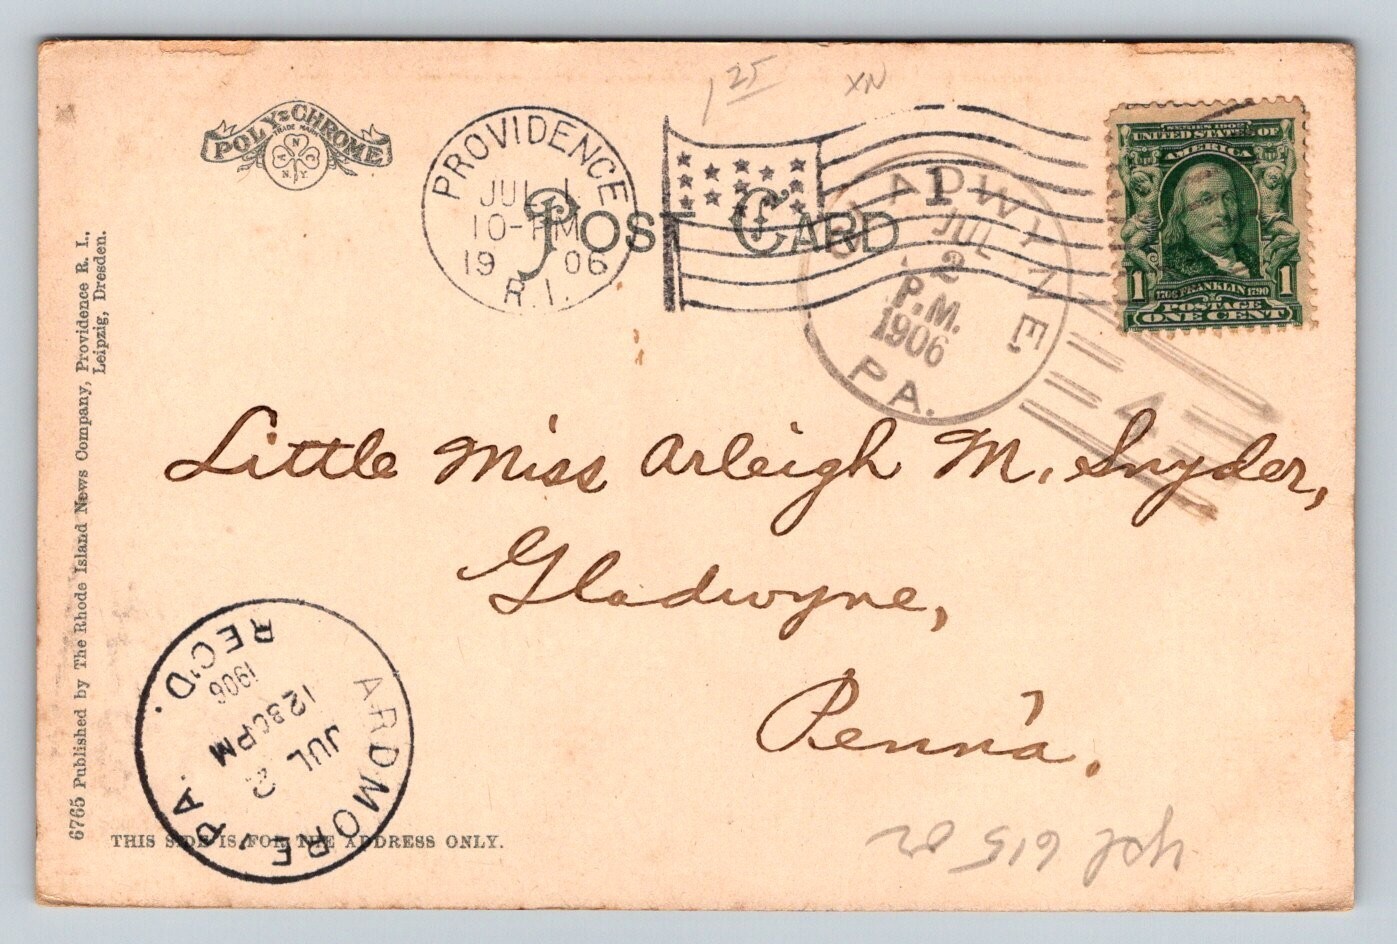 1 25 XN
POLY-CHROME
TRADE MARK
A N C
N.Y.
PROVIDENCE
JUL 1
10-PM
19 06
R.I.
POST CARD
1
GLADWYNE
JUL
2
P.M.
1906
PA.
4
SERIES 1902
UNITED STATES OF
AMERICA
1 1706 FRANKLIN 1790 1
POSTAGE
ONE CENT
6765 Published by The Rhode Island News Company, Providence R. I.,
Leipzig, Dresden.
Little Miss Arleigh M. Snyder,
Gladwyne,
Penn'a.
ARDMORE, PA.
JUL 2
1230PM
1906
REC'D.
THIS SIDE IS FOR THE ADDRESS ONLY.